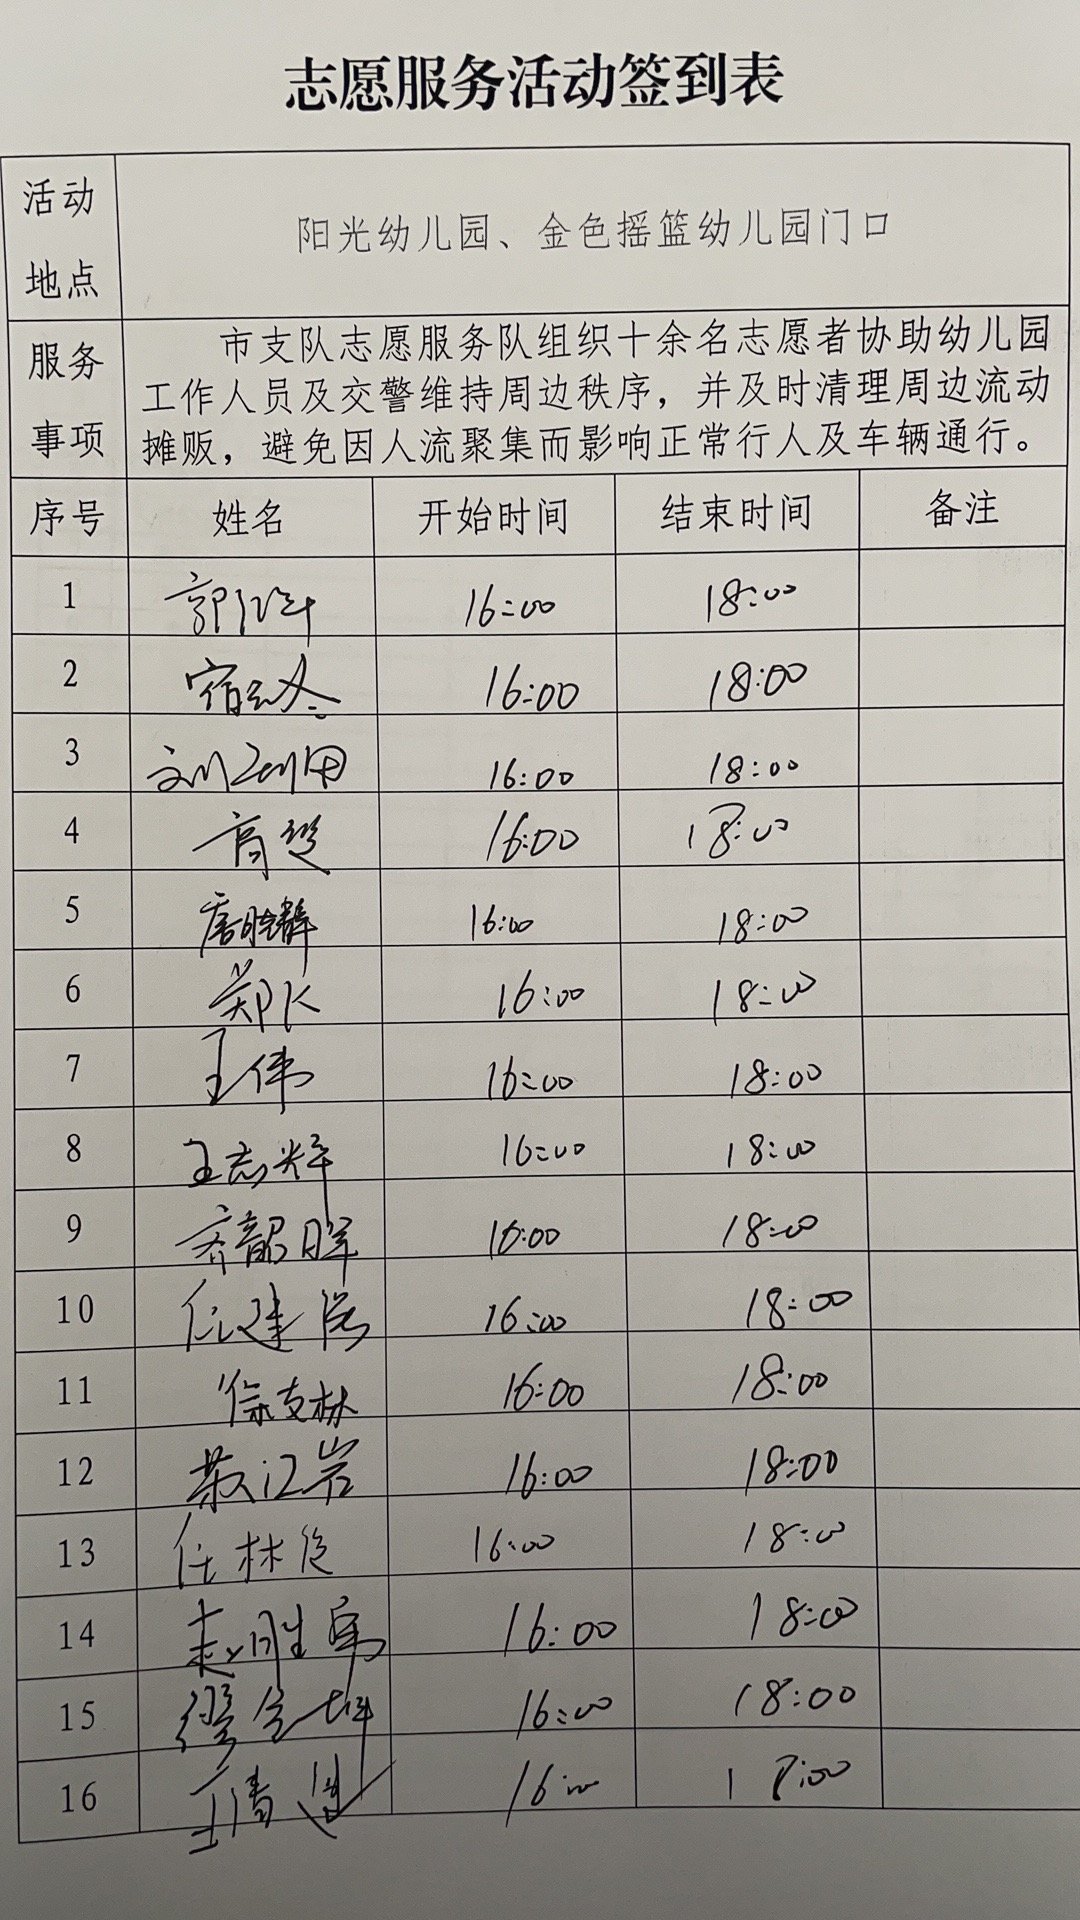 志愿服务活动签到表
活动
地点
阳光幼儿园、金色摇篮幼儿园门口
服务
事项
市支队志愿服务队组织十余名志愿者协助幼儿园
工作人员及交警维持周边秩序，并及时清理周边流动
摊贩，避免因人流聚集而影响正常行人及车辆通行。
序号 姓名 开始时间 结束时间 备注
1 郭 16:00 18:00
2 宿 16:00 18:00
3 刘 16:00 18:00
4 高 16:00 18:00
5 唐晓辉 16:00 18:00
6 郑 16:00 18:00
7 王伟 16:00 18:00
8 王志辉 16:00 18:00
9 齐韶晖 16:00 18:00
10 任建 16:00 18:00
11 徐支林 16:00 18:00
12 江岩 16:00 18:00
13 任林 16:00 18:00
14 胜 16:00 18:00
15 缪 16:00 18:00
16 王清 16:00 18:00